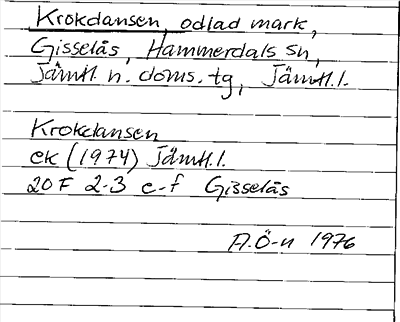 Krokdansen, odlad mark,
Gisselås, Hammerdals sn,
Jämtl. n. doms. tg, Jämtl.l.
Krokdansen
ek (1974) Jämtl.l.
20 F 2-3 e-f Gisselås
A.Ö-n 1976